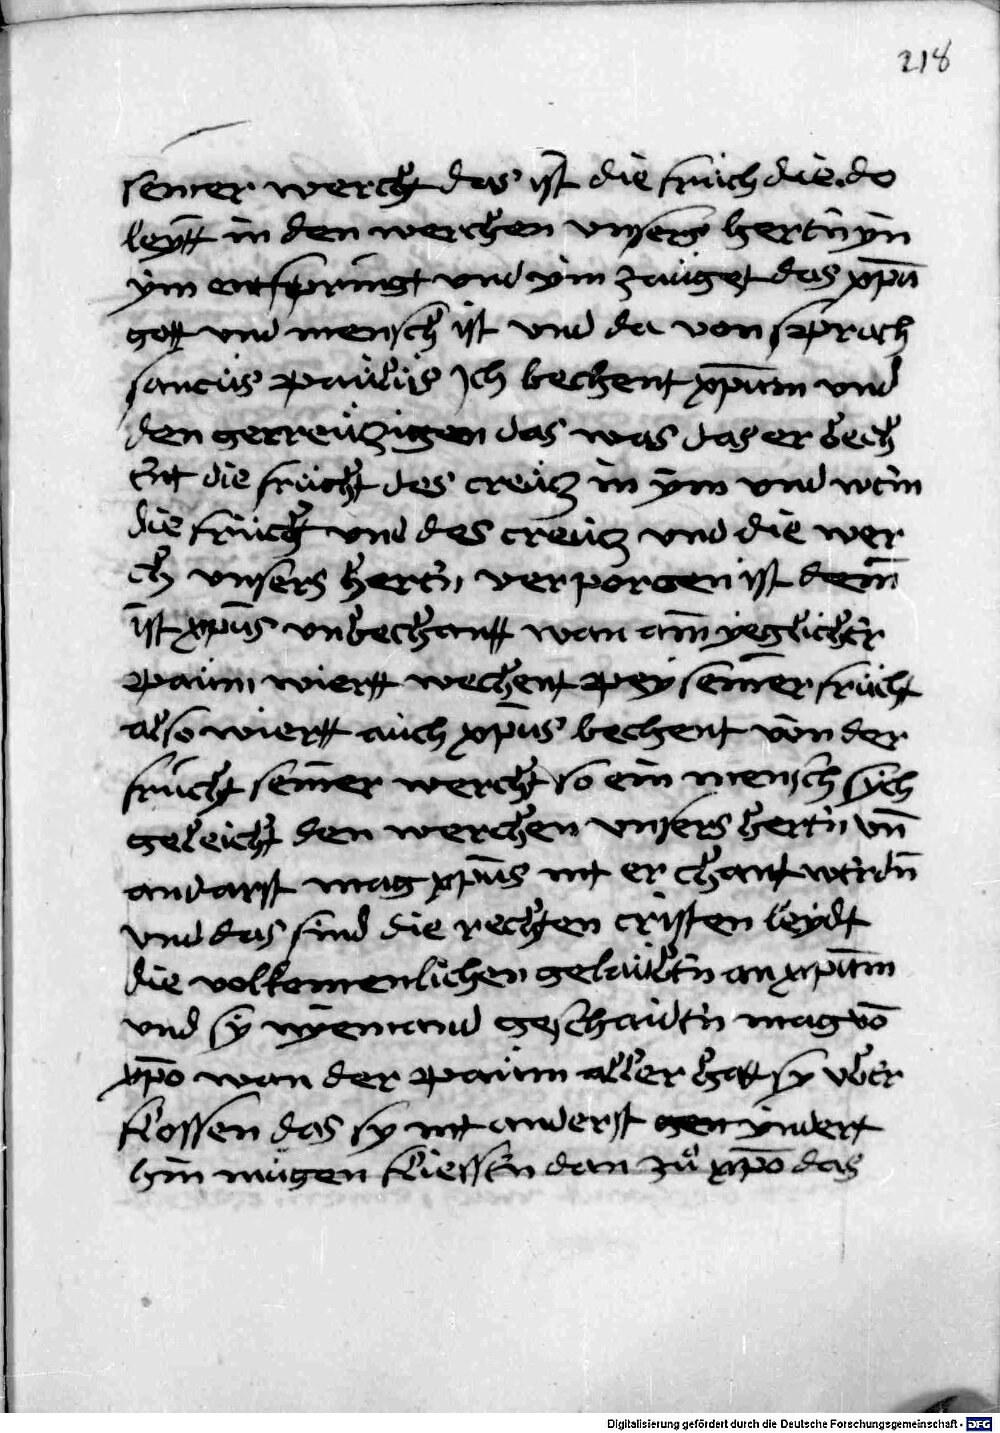 218
seiner werch das ist die frücht die do
leytt in den werchen unsers hertn̄ yn
ym entspringt und ym zaüget das xp̄u
gott und mensch ist und da von sprach
sanctus paülus Ich bechent xp̄um und
den gecreüczigen das was das er bech
ent die frücht des creücz in ym und wem
die frücht und des creücz und die wer
ch unsers hertn̄ verporgen ist dem
ist xp̄us unbechantt wan ain yeglicher
paüm wiertt bechent pey seiner frücht
also wiertt auch xp̄us bechent von der
frücht seiner werch so ein mensch sych
geleicht den werchen unsers hertn̄ un̄
anderst mag xp̄us nit erchant werdn̄
und das sind die rechten cristen leydt
die volkomenlichen gelaübtn̄ an xp̄um
und sy nyemand geschaidn̄ mag vō
xp̄o wan der paüm aller hatt sy uber
flossen das sy nit anderst gen yndert
hin mügen fliessn̄ dan zu xp̄o das
Digitalisierung gefördert durch die Deutsche Forschungsgemeinschaft - DFG